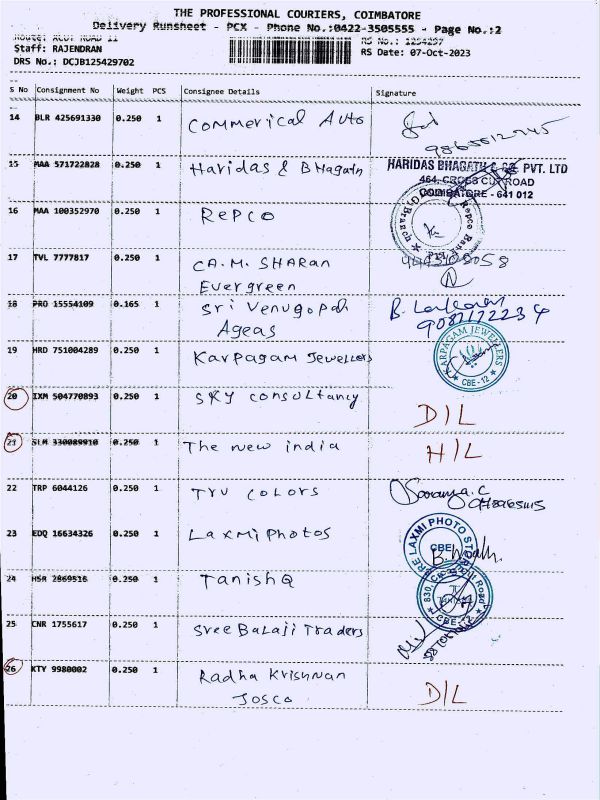 THE PROFESSIONAL COURIERS, COIMBATORE
Delivery Runsheet - PCX - Phone No.:0422-3505555 - Page No.:2
Route: ROAD 11
RS No.: 1254297
Staff: RAJENDRAN
RS Date: 07-Oct-2023
DRS No.: DCJB125429702
S No Consignment No Weight PCS Consignee Details Signature
14 BLR 425691330 0.250 1 Commerical Auto
15 MAA 571722828 0.250 1 Haridas & BHagath HARIDAS BHAGATH & CO. PVT. LTD
464, CROSS CUT ROAD
COIMBATORE - 641 012
16 MAA 100352970 0.250 1 REPCO Repco Bank
Branch
17 TVL 7777817 0.250 1 CA.M. SHARAN
Evergreen
18 PRO 15554109 0.165 1 Sri Venugopal
Ageas
9087172234
19 HRD 751004289 0.250 1 Karpagam Jewellers KARPAGAM JEWELLERS
CBE-12
20 IXM 504770893 0.250 1 SKY consultancy D/L
21 SLM 330089910 0.250 1 The new india H/L
22 TRP 6044126 0.250 1 TRU COLORS Soranya.C
23 EDQ 16634326 0.250 1 Laxmi Photos LAXMI PHOTO
CBE
24 HSR 2869516 0.250 1 TanishQ 830,
CBE-12
25 CNR 1755617 0.250 1 Sree Balaji Traders
26 KTY 9980002 0.250 1 Radha Krishnan
JOSCO
D/L